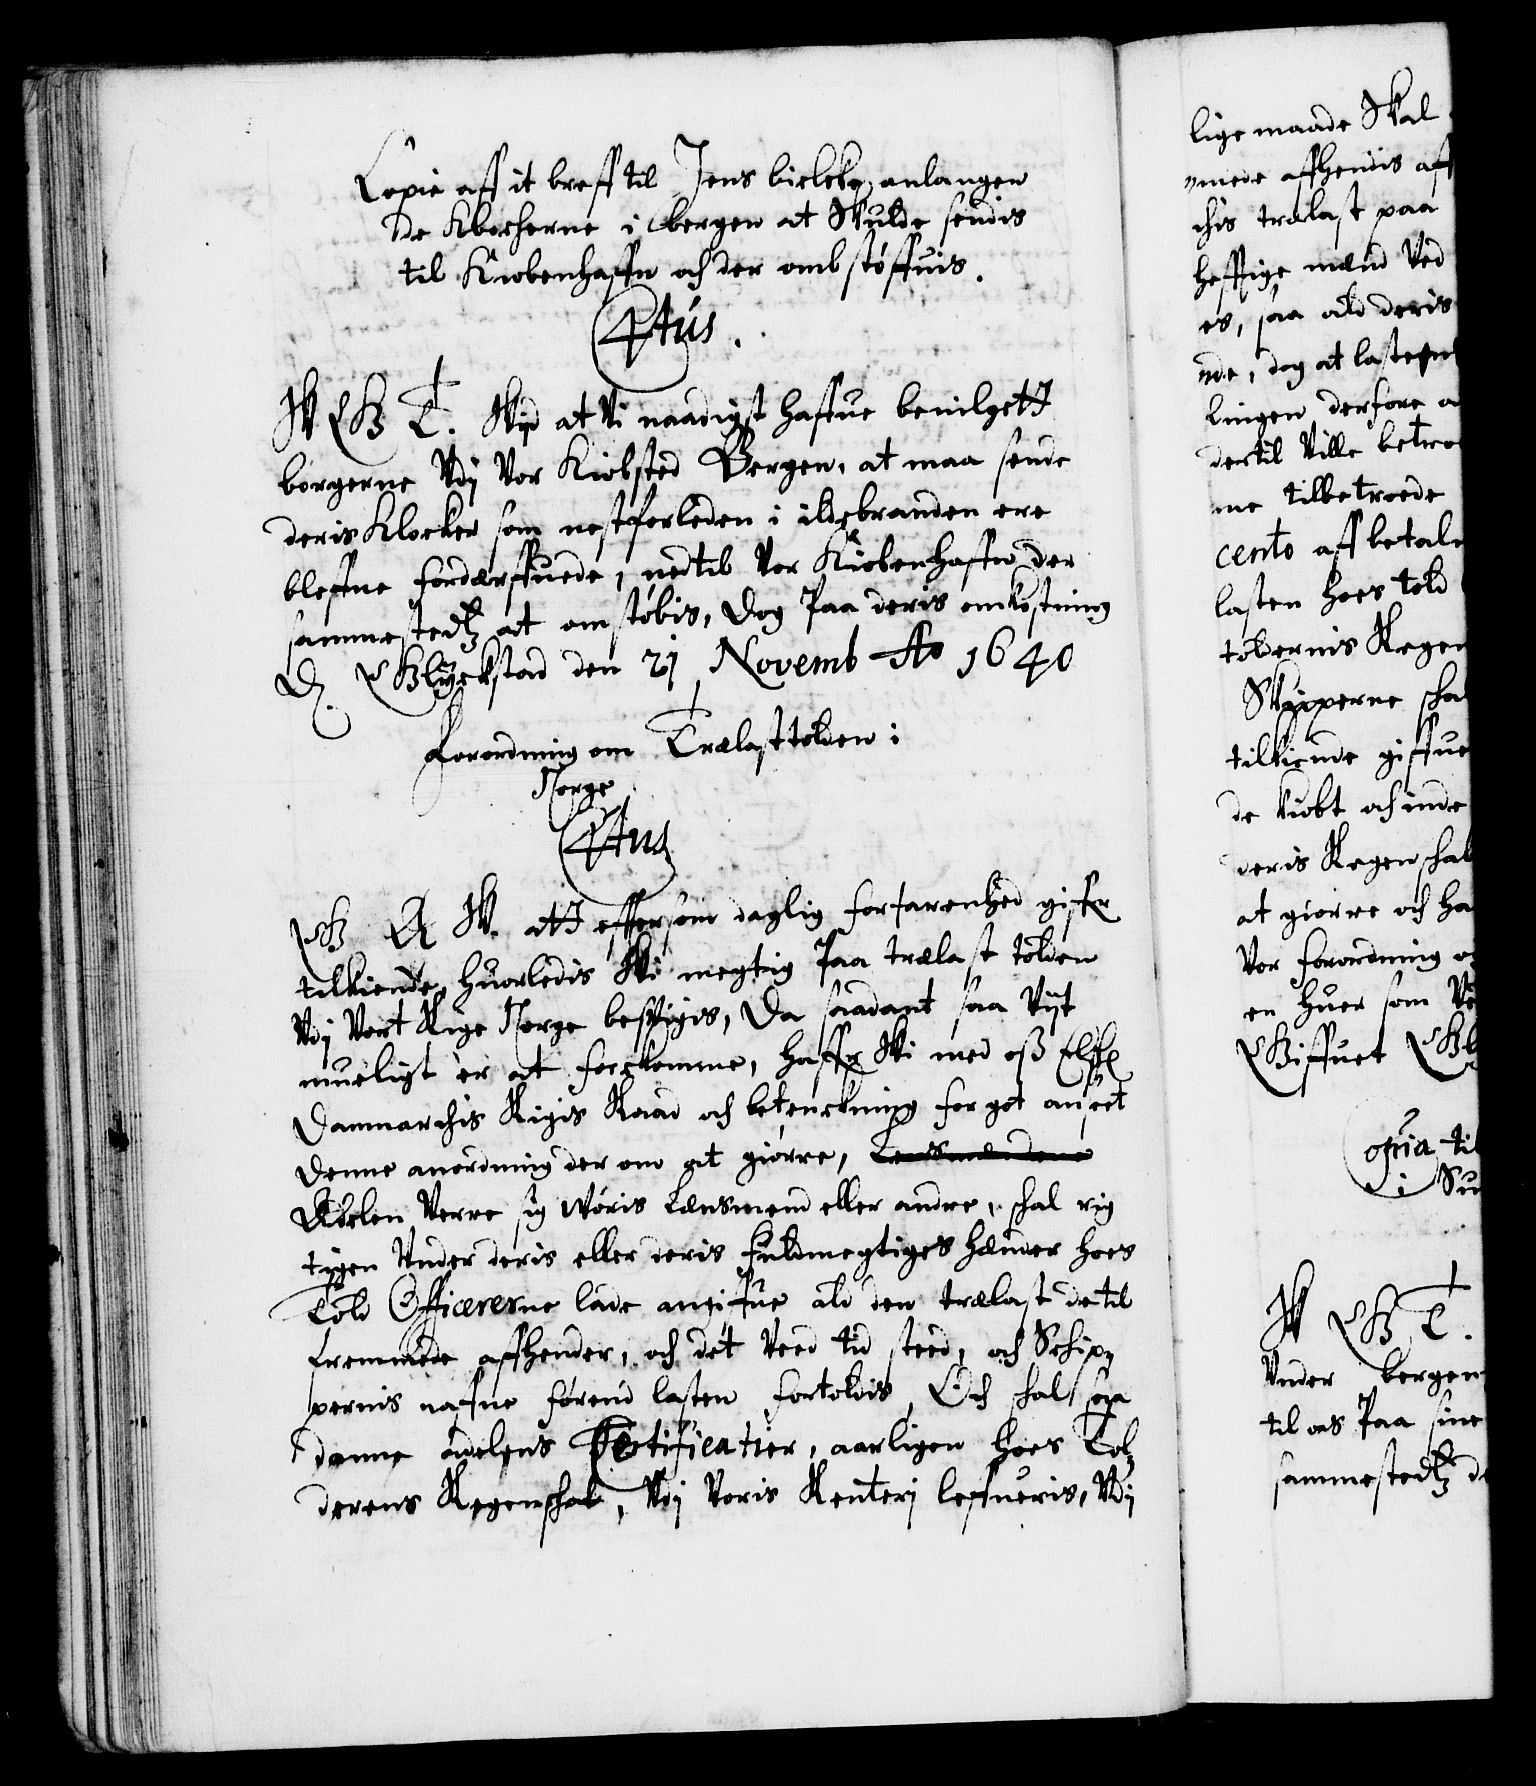 Copie aff it breff til Jens bielcke, anlangen
de Klockerne i bergen at Skulde sendis
til Kiøbenhaffn och der omb støffuis.
C4tus.
W G T. Wijd at Vi naadigst haffue beuilgett
borgerne Udj Vor Kiøbsted Bergen, at maa sende
deris Klocker som nestforleden i ildebranden ere
bleffne fordærffuede, ned til Vor Kiøbenhaffn der
sammestedtz at omstøbis, Dog Paa deris omkostning
D. Glyckstad den 21 Novemb Ao 1640
Forordning om Trælasttolden i
Norge
C4tus
G A W. att effterson daglig forfarenhed giffer
tilkiende, huorledis Wi megtig Paa trælast tolden
Udj Vort Rige Norge besuigis, Da saadant saa Vijt
mueligt er at forekomme, haffer Wi med oß Elskel
Danmarchis Rigis Raad och betenckning for got anseet
Denne anordning der om at giørre, Lensmændene
Adelen Verre sig Woris Lænsmend eller andre, schal rig
tigen Under deris eller deris fuldmegtiges hænder hoes
Told Officererne lade angiffue ald den trælast de til
fremmede affhender, och det Veed tid sted, och Schip,
pernis naffne førend lasten fortoldis, Och schal saa
danne adelens Certificatier, aarligen hoes Tol,
derens Regenschab, Udj Voris Renterj leffueris, Udj
lige maade Skal
mede affhendis aff
chis trælast paa
hefftige mænd Ved
es, saa ald deris
nde, dog at lasten
lingen derfore a
dertil Ville betro
me tilbetroede
cento aff betale
lasten hoes told
toldernis Regen
Skipperne scha
tilkiende giffue
de kiøbt och inde
deris Regenschab
at giørre och ha
Vor forordning o
en huer som Ve
Giffuet Gl
opia til
i Su
W G T.
Under bergen
til os Paa sine
sammestedtz de